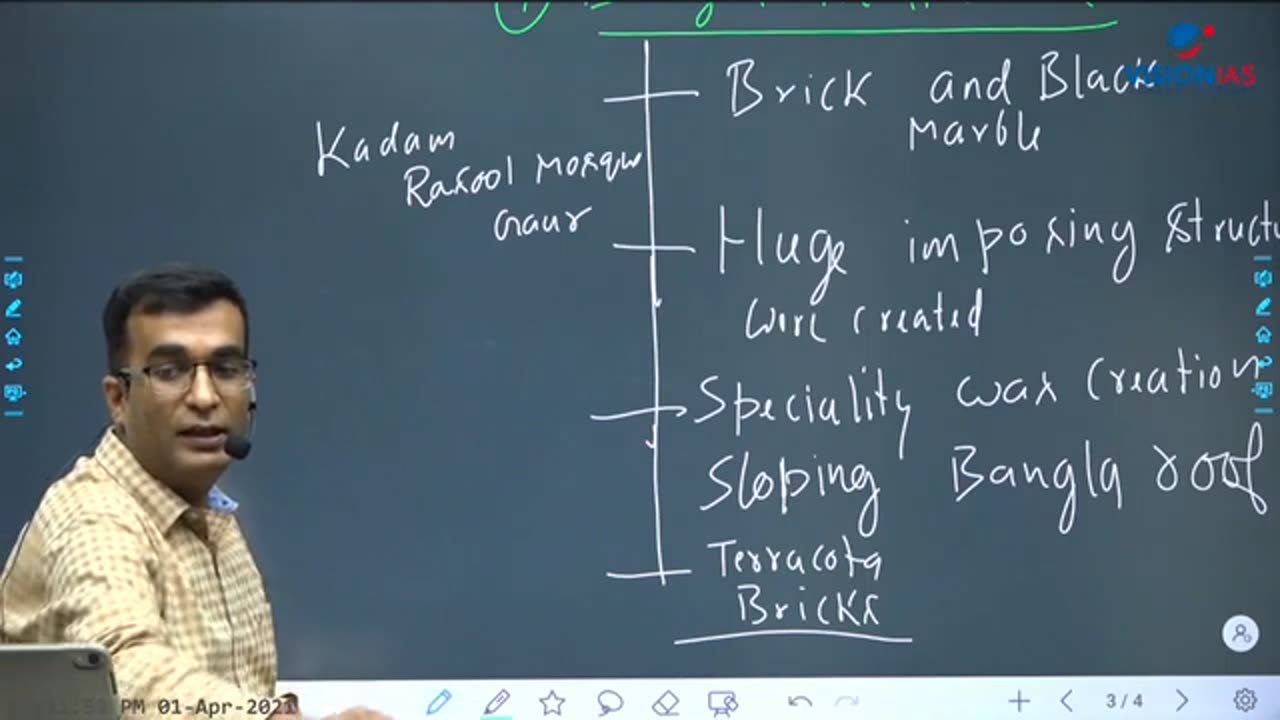 VISION IAS
Brick and Black
Marble
Kadam
Rasool Mosque
Gaur
Huge imposing structu
were created
Speciality was creation
Sloping Bangla roof
Terracota
Bricks
3/4
PM 01-Apr-2021